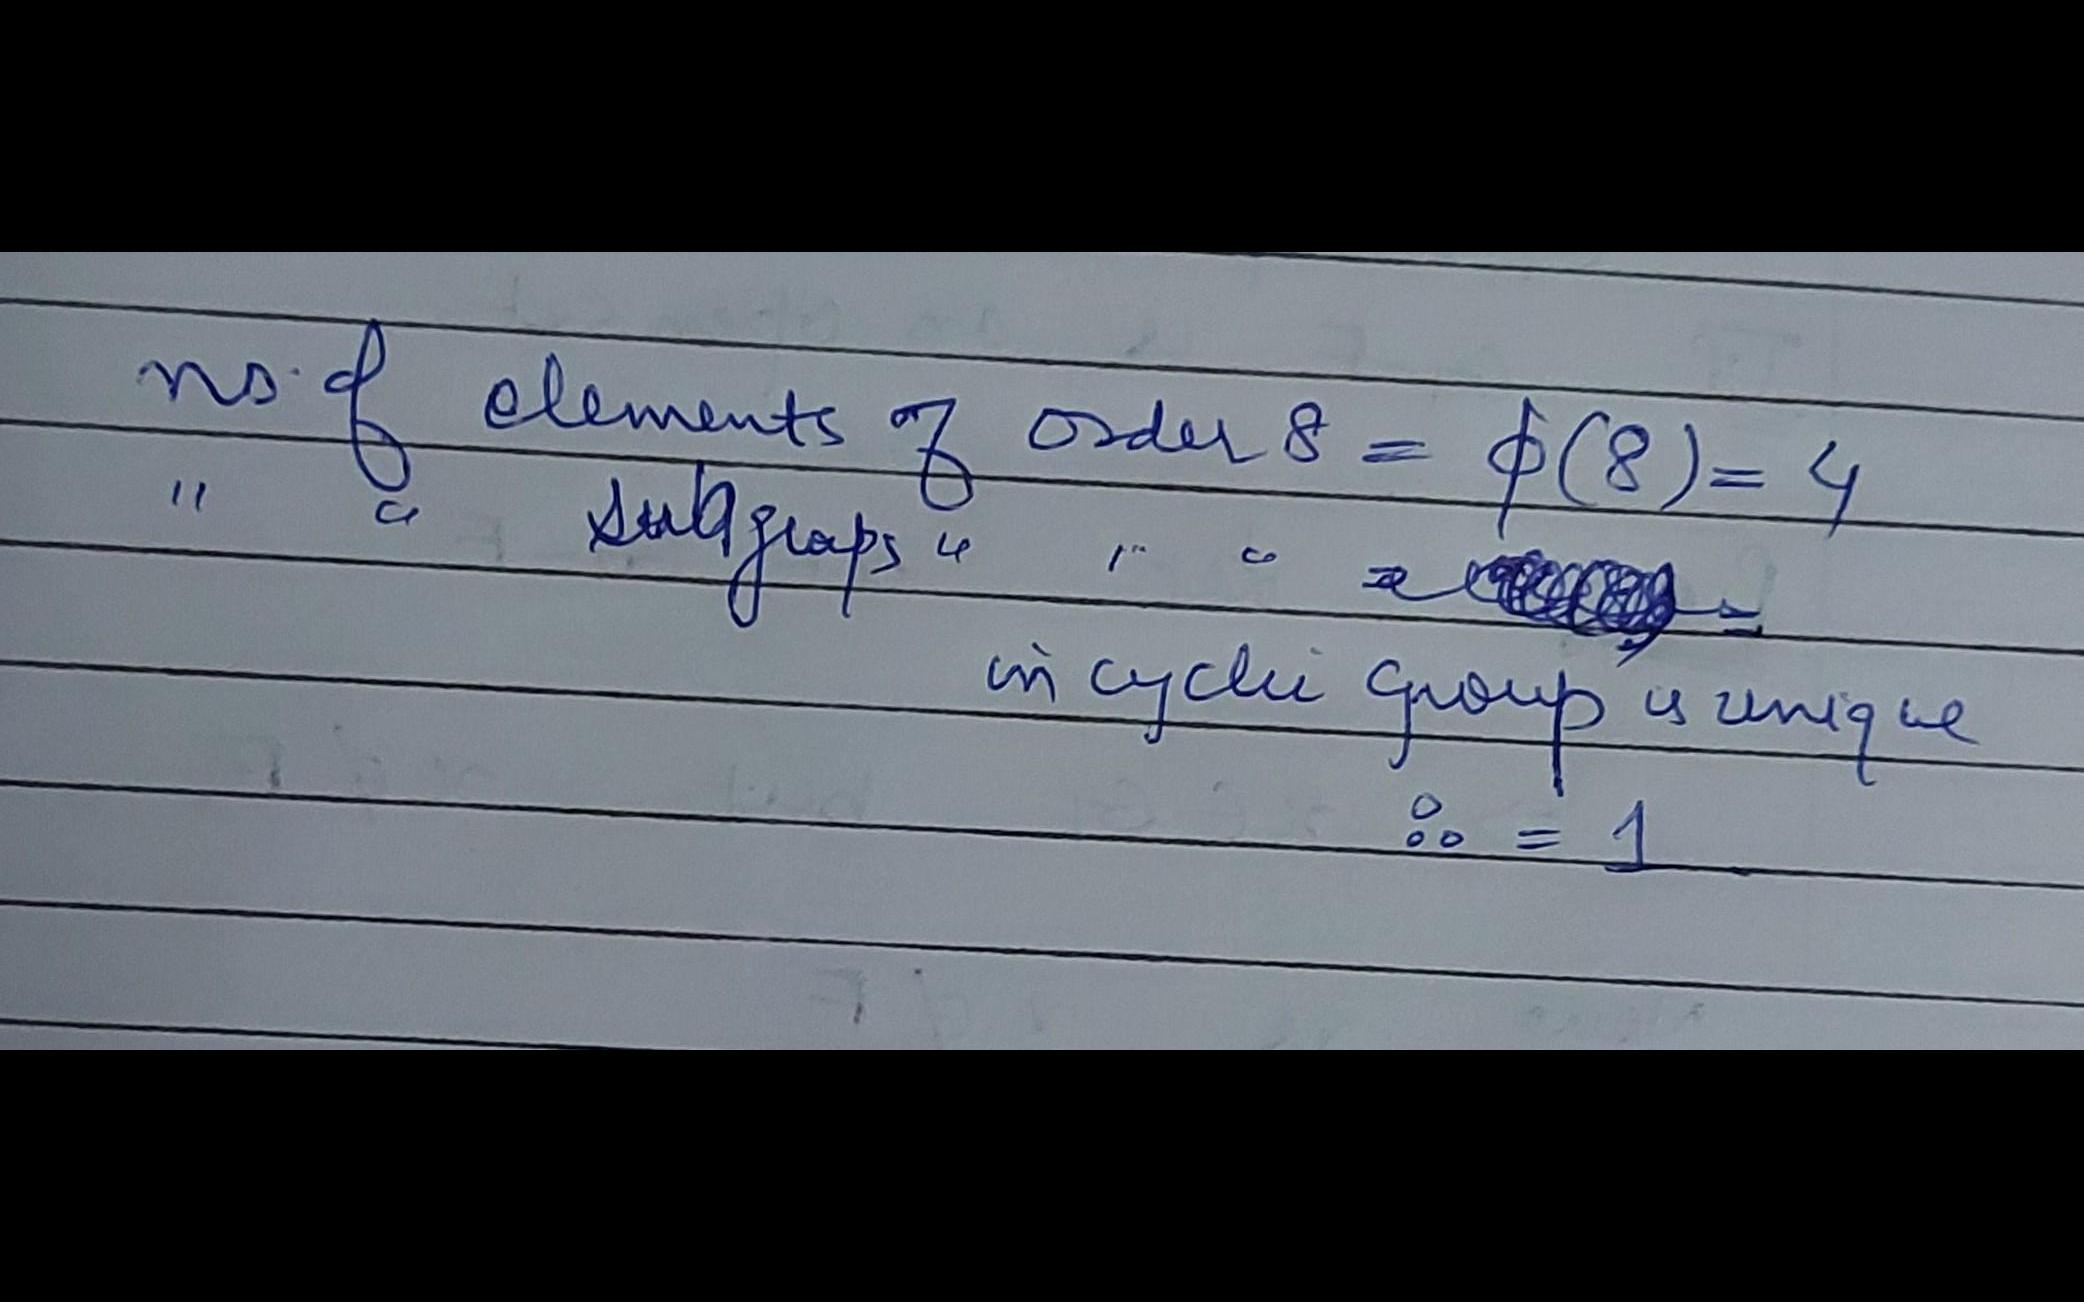 no. of elements of order 8 = ϕ(8) = 4
" " subgraps " " " = =
in cyclic group is unique
∴ = 1